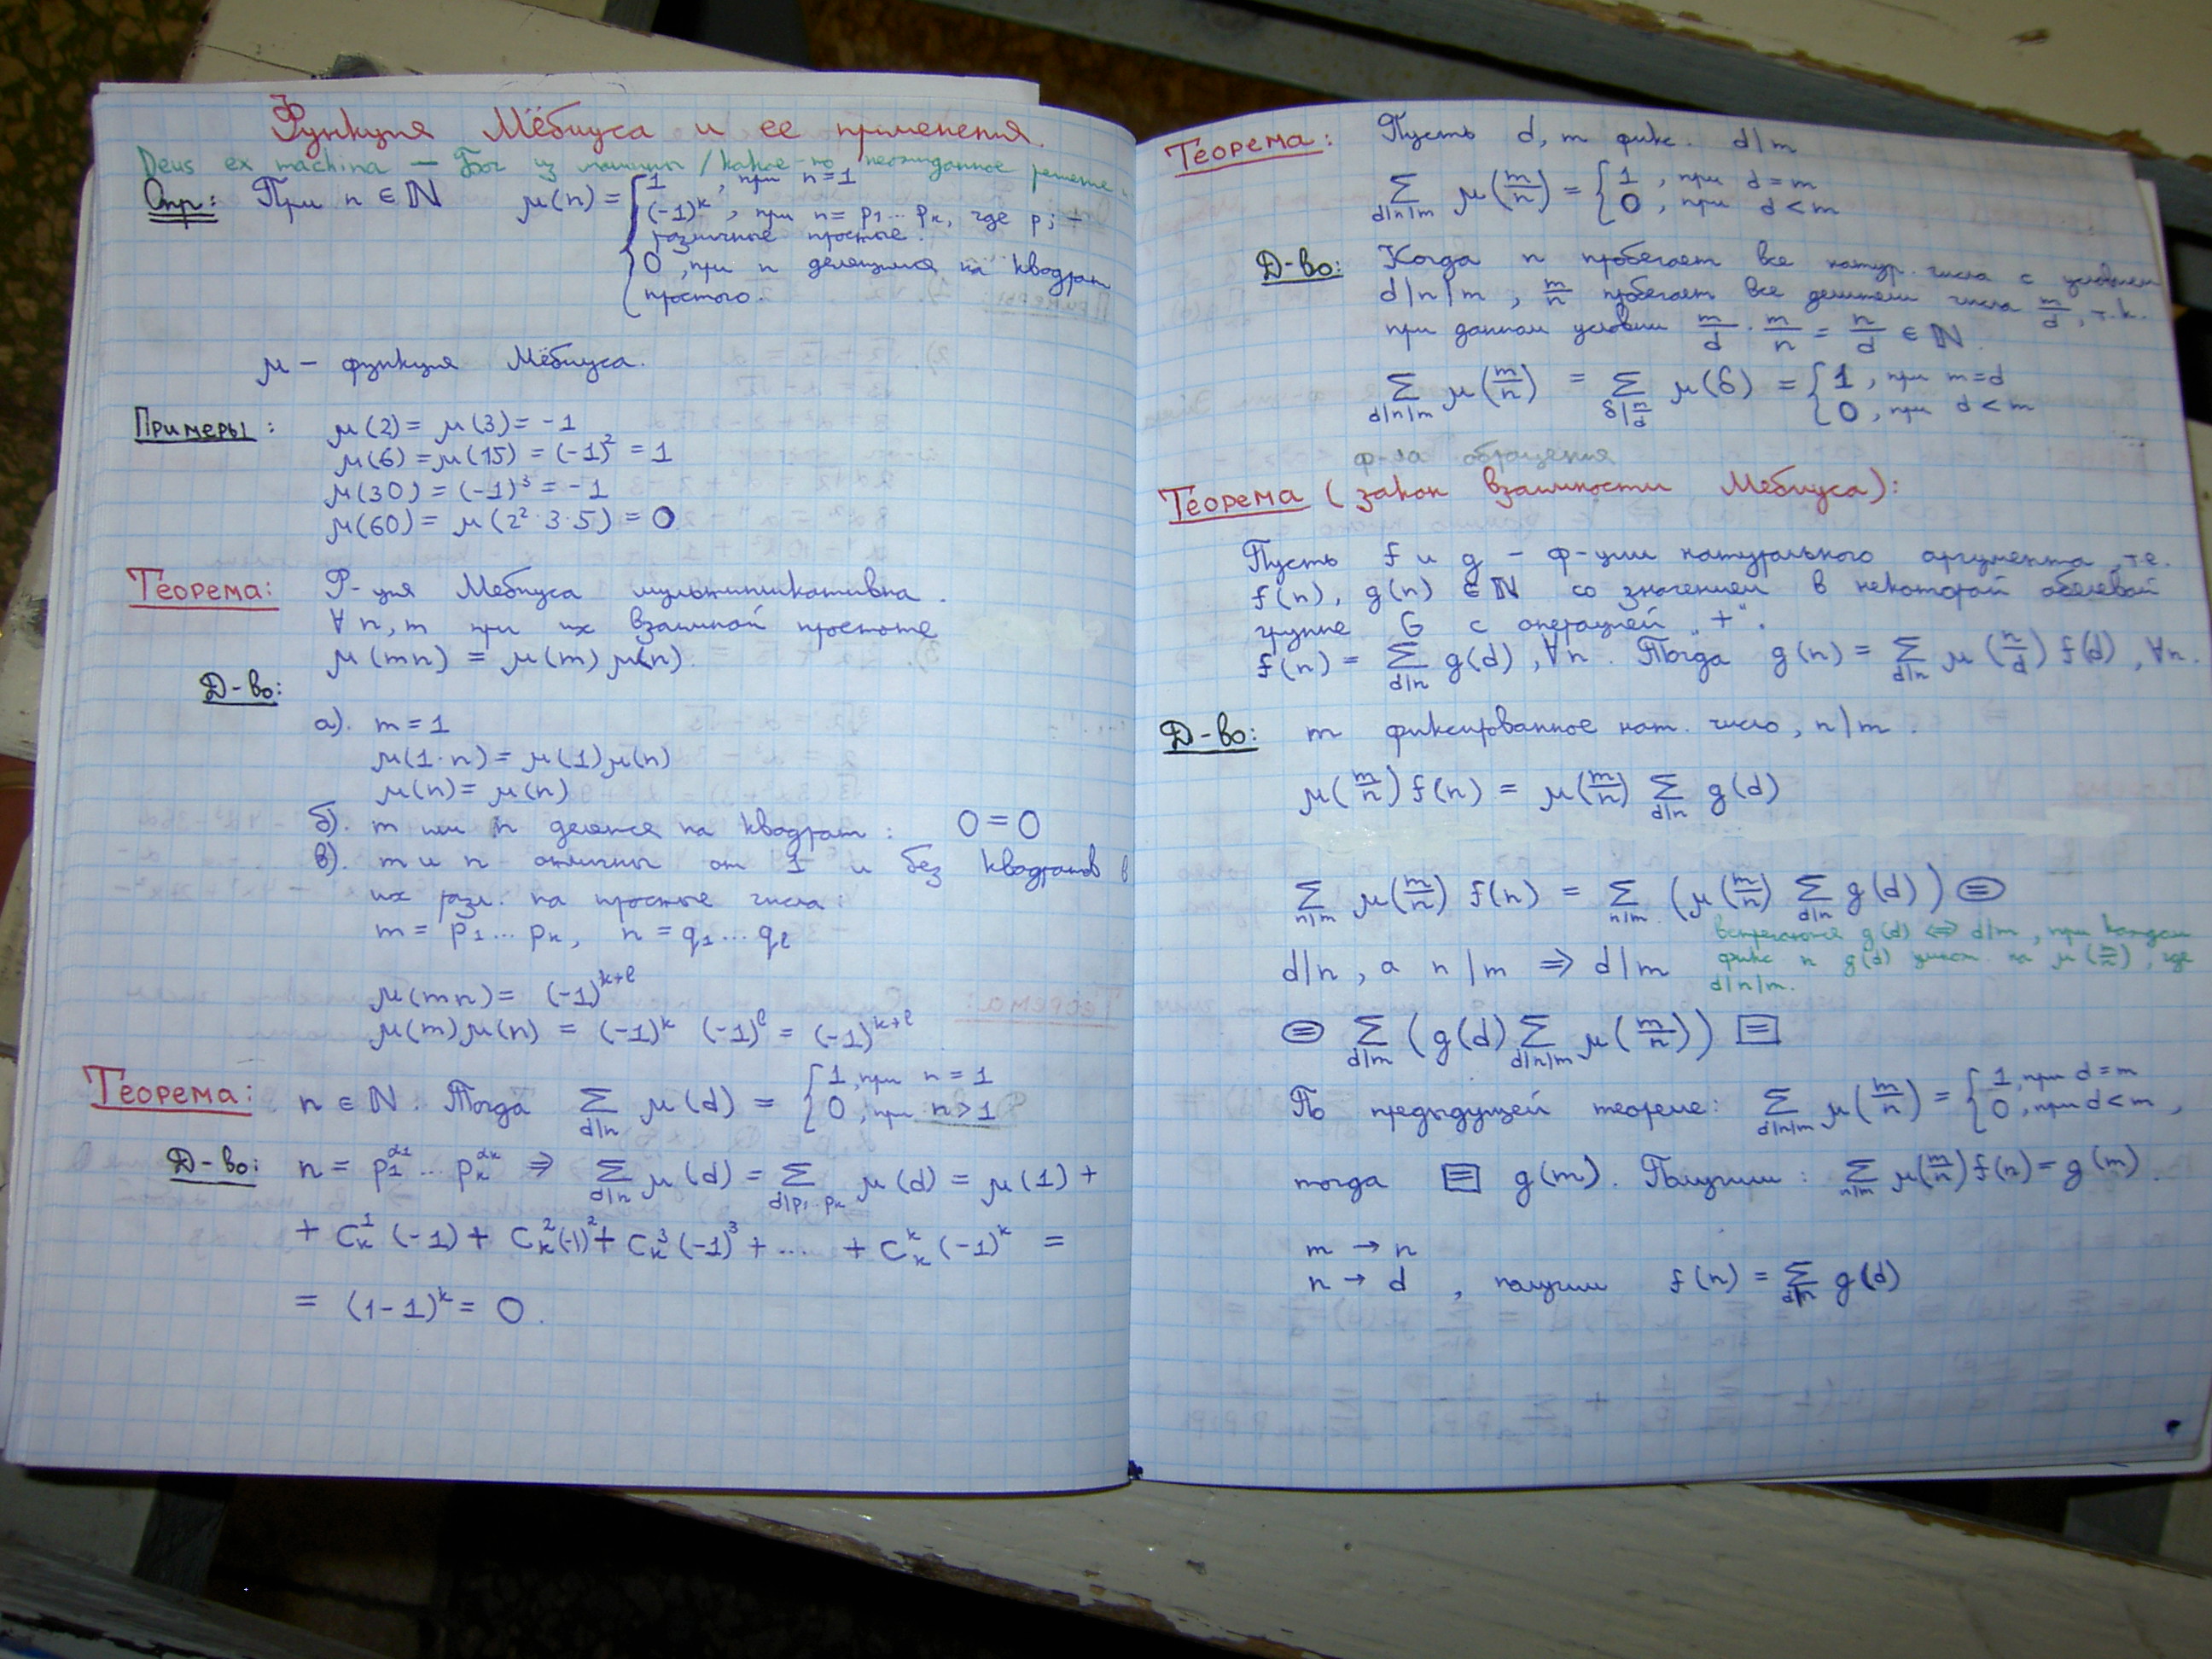 Функция Мёбиуса и ее применения.
Deus ex machina — Бог из машины / какое-то неожиданное решение
Опр: При n ∈ ℕ μ(n) = { 1, при n=1
(-1)^k, при n = p₁...pₖ, где pᵢ –
различные простые.
0, при n делящимся на квадрат
простого.
μ – функция Мёбиуса.
Примеры: μ(2) = μ(3) = -1
μ(6) = μ(15) = (-1)² = 1
μ(30) = (-1)³ = -1
μ(60) = μ(2²·3·5) = 0
Теорема: Ф-ция Мебиуса мультипликативна.
∀n,m при их взаимной простоте
μ(mn) = μ(m)μ(n).
Д-во:
а). m = 1
μ(1·n) = μ(1)μ(n)
μ(n) = μ(n)
б). m или n делится на квадрат: 0 = 0
в). m и n отличны от 1 и без квадратов в
их разл. на простые числа:
m = p₁...pₖ, n = q₁...qₗ
μ(mn) = (-1)^{k+l}
μ(m)μ(n) = (-1)^k (-1)^l = (-1)^{k+l}
Теорема: n ∈ ℕ. Тогда Σ_{d|n} μ(d) = { 1, при n = 1
0, при n > 1
Д-во: n = p₁^{α₁}...pₖ^{αₖ} ⇒ Σ_{d|n} μ(d) = Σ_{d|p₁...pₖ} μ(d) = μ(1) +
+ C_k^1 (-1) + C_k^2 (-1)² + C_k^3 (-1)³ + ... + C_k^k (-1)^k =
= (1-1)^k = 0.
Теорема: Пусть d, m фикс. d|m
Σ_{d|n|m} μ(m/n) = { 1, при d = m
0, при d < m
Д-во: Когда n пробегает все натур. числа с условием
d|n|m, m/n пробегает все делители числа m/d, т.к.
при данном условии m/d · m/n = n/d ∈ ℕ.
Σ_{d|n|m} μ(m/n) = Σ_{δ|m/d} μ(δ) = { 1, при m=d
0, при d < m
ф-ла обращения
Теорема (закон взаимности Мебиуса):
Пусть f и g – ф-ции натурального аргумента, т.е.
f(n), g(n) ∈ ℕ со значением в некоторой абелевой
группе G с операцией „+“.
f(n) = Σ_{d|n} g(d), ∀n. Тогда g(n) = Σ_{d|n} μ(n/d) f(d), ∀n.
Д-во: m фиксированное нат. число, n|m.
μ(m/n) f(n) = μ(m/n) Σ_{d|n} g(d)
Σ_{n|m} μ(m/n) f(n) = Σ_{n|m} (μ(m/n) Σ_{d|n} g(d)) ⊜
встречаются g(d) ⇔ d|m, при каждом
d|n, а n|m ⇒ d|m фикс n g(d) умнож. на μ(m/n), где
d|n|m.
⊜ Σ_{d|m} (g(d) Σ_{d|n|m} μ(m/n)) [=]
По предыдущей теореме: Σ_{d|n|m} μ(m/n) = { 1, при d = m
0, при d < m,
тогда [=] g(m). Получим: Σ_{n|m} μ(m/n) f(n) = g(m).
m → n
n → d, получим f(n) = Σ_{d|n} g(d)